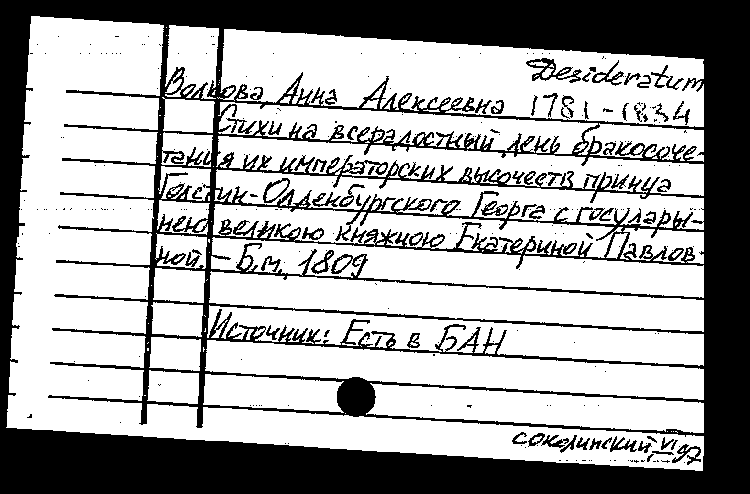 Desideratum
Волкова, Анна Алексеевна 1781-1834
Стихи на всерадостный день бракосоче-
тания их императорских высочеств принца
Голстин-Олденбургского Георга с государы-
нею великою княжною Екатериной Павлов-
ной. – Б.м., 1809
Источник: Есть в БАН
соколинский, VI 97